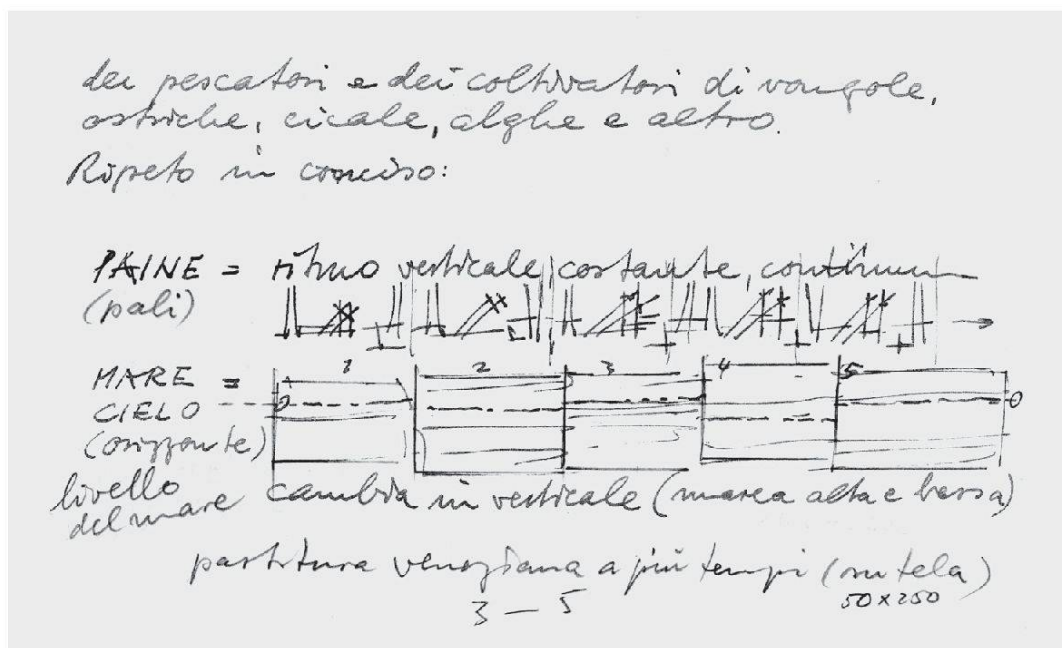 dei pescatori e dei coltivatori di vongole,
ostriche, cicale, alghe e altro.
Ripeto in conciso:
PAINE = ritmo verticale costante, continuo
(pali)
1 2 3 4 5
MARE =
CIELO
(orizzonte)
livello
del mare
cambia in verticale (marea alta e bassa)
partitura veneziana a più tempi (su tela)
3 — 5 50x250